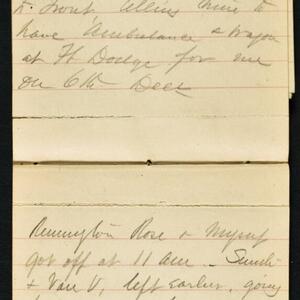 have Ambulance & Wagon
at Ft Dodge for me
on 6th Dec
Remington Rose & Myself
got off at 11 am - Smith
& Van V, left earlier, going